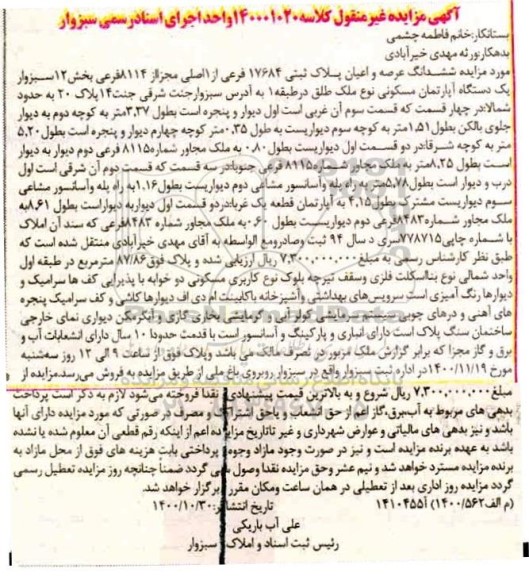 آگهی مزایده غیر منقول کلاسه ۱۴۰۰۰۱۰۲۰ واحد اجرای اسناد رسمی سبزوار
بستانکار: خانم فاطمه چشمی
بدهکار: ورثه مهدی خیرآبادی
مورد مزایده ششدانگ عرصه و اعیان پلاک ثبتی ۱۷۶۸۴ فرعی از ۱ اصلی مجزااز ۸۱۱۴ فرعی بخش ۱۲ سبزوار
یک دستگاه آپارتمان مسکونی نوع ملک طلق درطبقه ۱ به آدرس سبزوار جنت شرقی جنت ۱۴ پلاک ۲۰ به حدود
شمالادر چهار قسمت که قسمت سوم آن غربی است اول دیوار و پنجره است بطول ۳.۳۷ متر به کوچه دوم به دیوار
جلوی بالکن بطول ۱.۵۱ متر به کوچه سوم دیواریست به طول ۰.۳۵ متر کوچه چهارم دیوار و پنجره است بطول ۵.۲۰
متر به کوچه شرقادر دو قسمت اول دیواریست بطول ۰.۸۰ به ملک مجاور شماره ۸۱۱۵ فرعی دوم دیوار به دیوار
است بطول ۸.۲۵ متر به ملک مجاور شماره ۸۱۱۵ فرعی جنوبادر سه قسمت که قسمت دوم آن شرقی است اول
درب و دیوار است بطول ۵.۷۸ متر به راه پله وآسانسور مشاعی دوم دیواریست بطول ۱.۱۶ به راه پله وآسانسور مشاعی
سوم دیواریست مشترک بطول ۴.۱۵ به آپارتمان قطعه یک غربادردو قسمت اول دیواربه دیواراست بطول ۸.۶۱ به
ملک مجاور شماره ۸۴۸۳ فرعی دوم دیواریست بطول ۰.۶۰ به ملک مجاور شماره ۸۴۸۳ فرعی که سند آن املاک
با شماره چاپی ۷۷۸۷۱۵ سری د سال ۹۴ ثبت وصادرومع الواسطه به آقای مهدی خیرآبادی منتقل شده است که
طبق نظر کارشناس رسمی به مبلغ ۷,۳۰۰,۰۰۰,۰۰۰ ریال ارزیابی شده و پلاک فوق ۸۷/۸۶ مترمربع در طبقه اول
واحد شمالی نوع بنااسکلت فلزی وسقف تیرچه بلوک نوع کاربری مسکونی دو خوابه با پذیرایی کف ها سرامیک و
دیوارها رنگ آمیزی است سرویس‌های بهداشتی وآشپزخانه باکابینت ام دی اف دیوارها کاشی و کف سرامیک پنجره
های آهنی و درهای چوبی سیستم سرمایشی کولر آبی و گرمایشی بخاری گازی و آبگرمکن دیواری نمای خارجی
ساختمان سنگ پلاک است دارای انباری و پارکینگ و آسانسور است با قدمت حدودا ۱۰ سال دارای انشعابات آب و
برق و گاز مجزا که برابر گزارش ملک مزبور در تصرف مالک می باشد وپلاک فوق از ساعت ۹ الی ۱۲ روز سه‌شنبه
مورخ ۱۴۰۰/۱۱/۱۹ در اداره ثبت سبزوار واقع در سبزوار روبروی باغ ملی از طریق مزایده به فروش می‌رسد.مزایده از
مبلغ ۷,۳۰۰,۰۰۰,۰۰۰ ریال شروع و به بالاترین قیمت پیشنهادی نقدا فروخته می‌شود لازم به ذکر است پرداخت
بدهی های مربوط به آب،برق،گاز اعم از حق انشعاب و یاحق اشتراک و مصرف در صورتی که مورد مزایده دارای آنها
باشد و نیز بدهی های مالیاتی و عوارض شهرداری و غیر تاتاریخ مزایده اعم از اینکه رقم قطعی آن معلوم شده یا نشده
باشد به عهده برنده مزایده است و نیز در صورت وجود مازاد وجوه پرداختی بابت هزینه های فوق از محل مازاد به
برنده مزایده مسترد خواهد شد و نیم عشر وحق مزایده نقدا وصول می گردد ضمناً چنانچه روز مزایده تعطیل رسمی
گردد مزایده روز اداری بعد از تعطیلی در همان ساعت ومکان مقرر برگزار خواهد شد.
(م الف ۱۴۰۰/۵۶۲) ۱۴۱۰۴۵۵آ تاریخ انتشار: ۱۴۰۰/۱۰/۳۰
علی آب باریکی
رئیس ثبت اسناد و املاک سبزوار